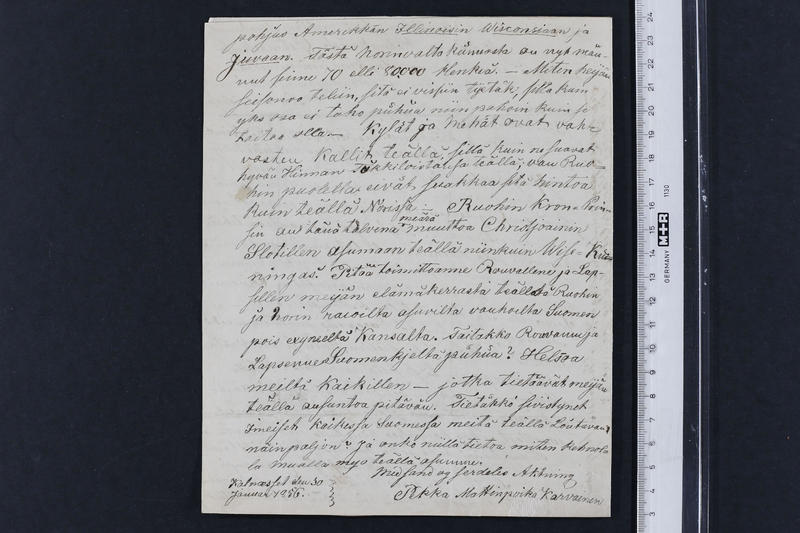 pohjus Amerikkän Illinoisin Wisconsiaan ja
juvaan. Tästä Norinvaltakunnosta on nyt män-
nut siine 70 elli 80000 Henkiä. — Miten heijän
seisonoo teliin, sitä ei vissin tietäk, sillä kuin
yks osa ei taho pühüa niin pahoin kuin se
taitaa olla. — Kylät ja Mehät ovat vah-
vasten Kallit teällä, sillä kuin ne suavat
hyvän Hinnan teällä, van Ruo-
hin puolella eivät suakkaa sitä hintoa
kuin teällä Norissa — Ruohin Kron-Prin-
sin on tänä talvena määrä muuttoa Christjaanin
Slotillen asumaan teällä niinkuin Wise-Kü-
ningas. Pitää toimittoanne Rouvallene ja Lap-
sillen meijän elämäkerrasta teällä Ruohin
ja Norin rajoilla asuvilta vanhoilta Suomen
pois eksyneltä Kansalta. Taitakko Rouvanne ja
Lapsenne Suomenkjeltä pühüa? Helsoa
meiltä Kaikillen — jotka tietäävät meijän
teällä asuntoa pitävän. Tietäkkö sivistynet
Imeiset kaikessa Suomessa meitä teällä Löutävän
näin paljon? Ja onko niillä tietoa miten kehnola
la mualla myö teällä asumme.
Med sand og særdeles Aktning
Kalnæsset den 30
Januar 1956.
Pekka Mattinpoika Karvainen
GERMANY M+R 1130
3
4
5
6
7
8
9
10
11
12
13
14
15
16
17
18
19
20
21
22
23
24